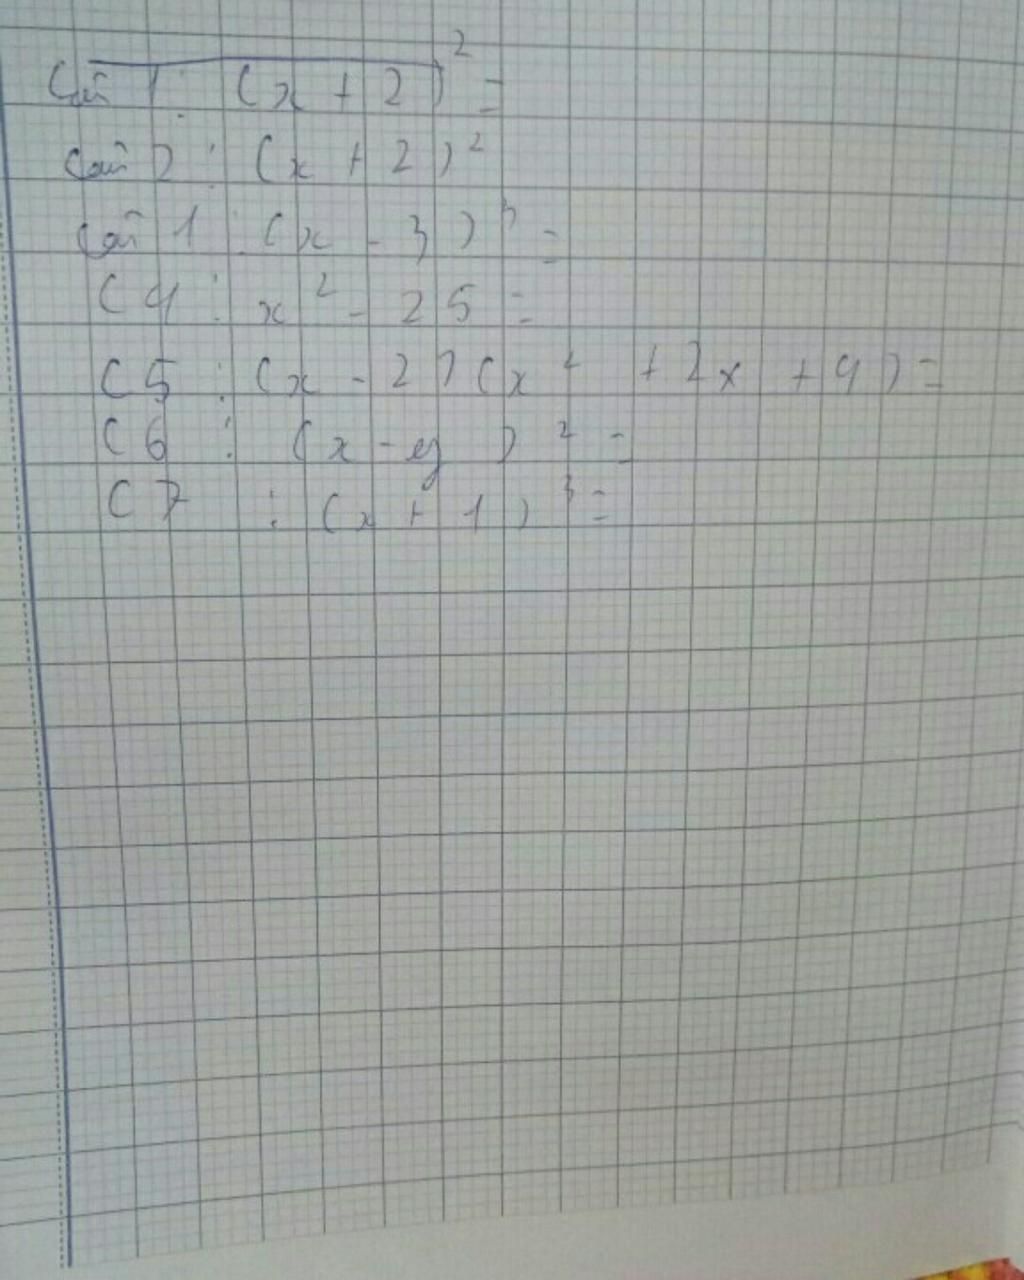 Câu 1: (x + 2)² =
Câu 2: (x + 2)²
Câu 1: (x - 3)³ =
C4: x² - 25 =
C5: (x - 2)(x² + 2x + 4) =
C6: (x - y)² =
C7: (x + 1)³ =